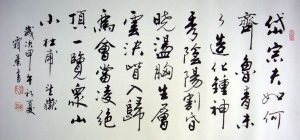 岱宗夫如何
齊魯青未
了造化鍾神
秀陰陽割昏
曉盪胸生層
雲決眥入歸
鳥會當凌絕
頂一覽眾山
小杜甫望嶽
歲次甲午初夏